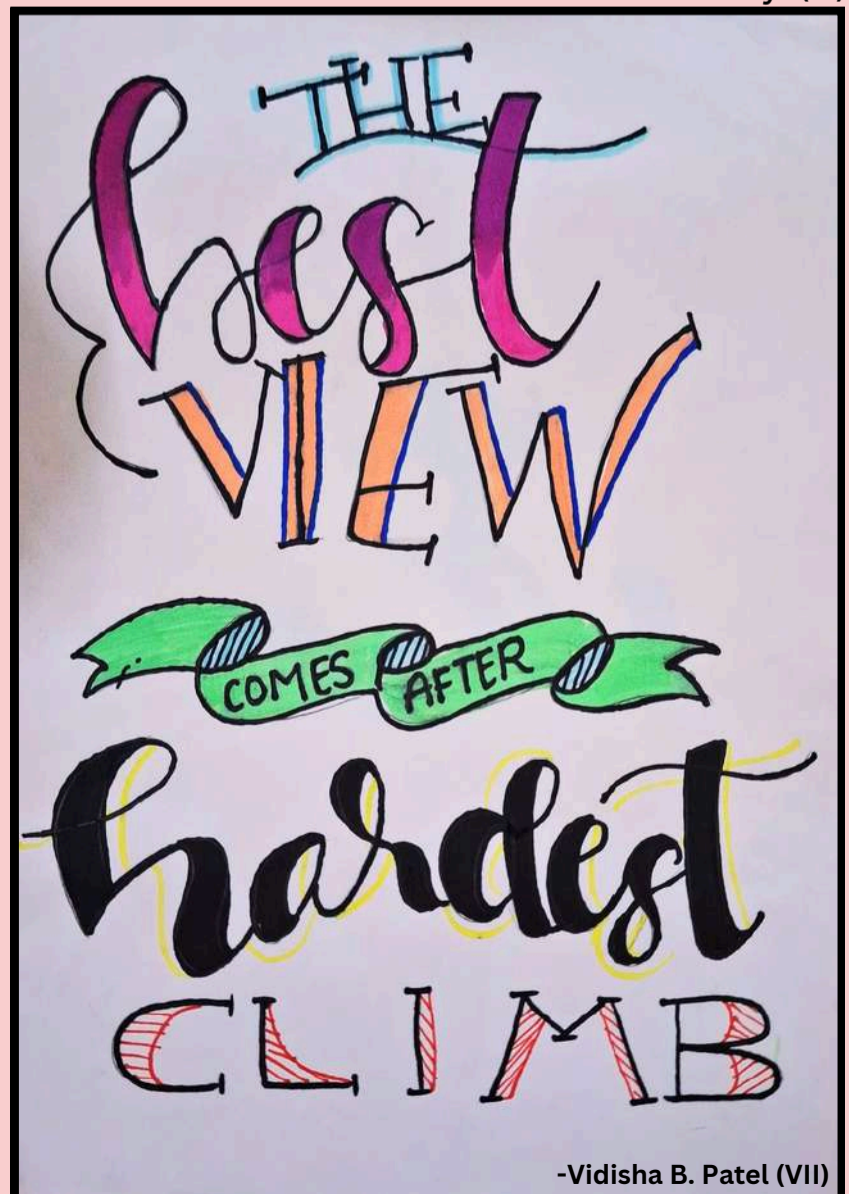 THE
best
VIEW
COMES AFTER
hardest
CLIMB
-Vidisha B. Patel (VII)